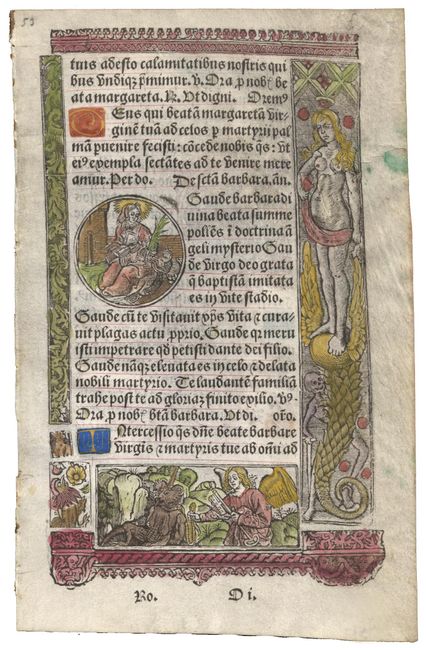 59
tuis adesto calamitatibus nostris qui
bus vndiqʒ p̃mimur. v̉. Ora ꝓ nob̃ be
ata margareta. R̉. Vt digni. Orem⁹
DEus qui beatã margaretã vir
ginẽ tuã ad celos ꝑ martyrii pal
mã puenire fecisti: cõcede nobis q̃s: vt
ei⁹ exempla sectãtes ad te venire mere
amur. Per do. De sctã barbara, añ.
Gaude barbara di
uina beata summe
pollẽs ĩ doctrina ã
geli mysterio Gau
de virgo deo grata
q̃ baptistã imitata
es in vite stadio.
Gaude cũ te visitauit xp̃s vita ⁊ cura-
uit plagas actu ꝓprio. Gaude qr meru
isti impetrare qd̃ petisti dante dei filio.
Gaude nãqʒ eleuata es in celo ⁊ delata
nobili martyrio. Te laudantẽ familiã
trahe post te ad gloriã: finito exilio. v̉⁹.
Ora ꝓ nob̃ btã barbara. Vt di. oro.
INtercessio q̃s dñe beate barbare
virgis̃ ⁊ martyris tue ab oĩn̄i ad
Ro. D i.